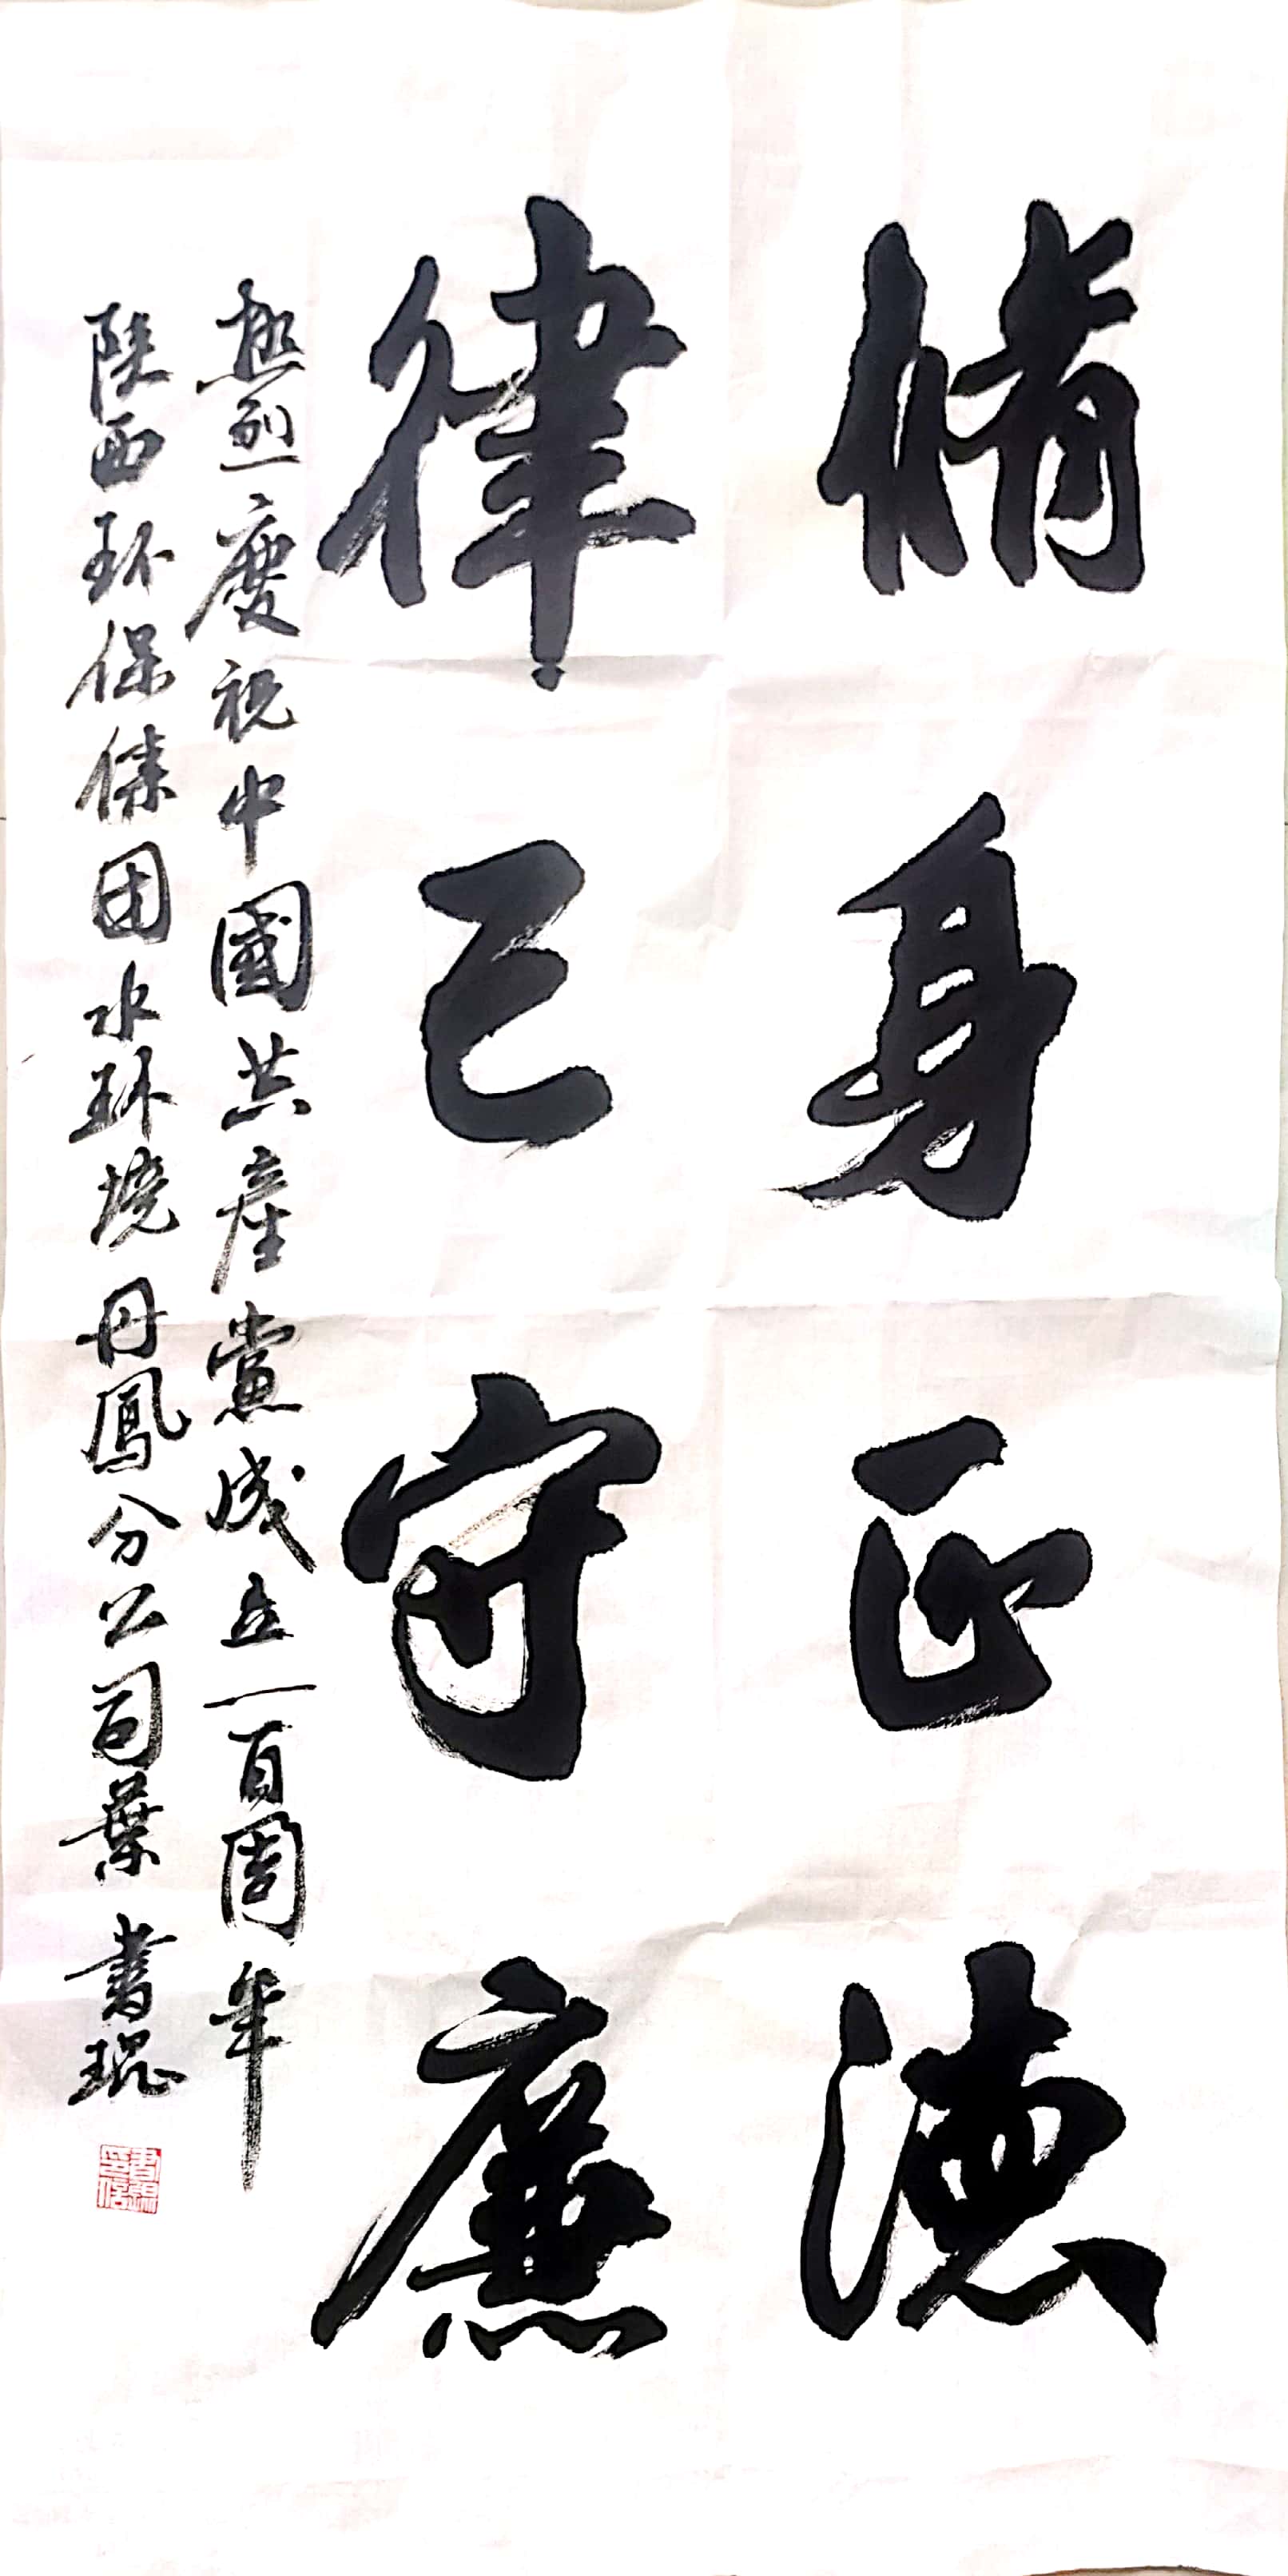 脩身正德
律己守廉
熱烈慶祝中國共產黨成立一百周年
陕西环保集团水环境丹鳳分公司葉書琨